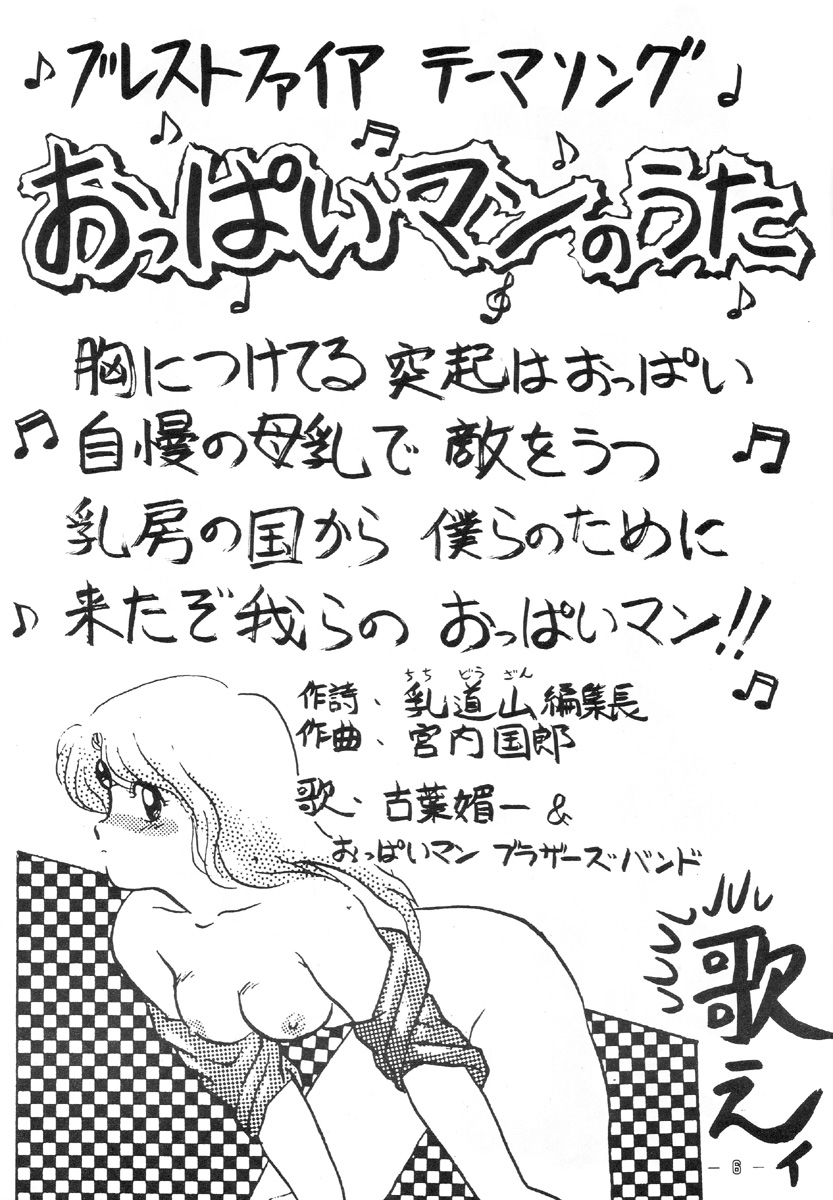 ♪ブレストファイア テーマソング♩
おっぱいマンのうた
胸につけてる 突起はおっぱい
自慢の母乳で 敵をうつ
乳房の国から 僕らのために
来たぞ我らの おっぱいマン!!
作詩、乳道山編集長
ちちどうざん
作曲、宮内国郎
歌、古葉媚一&
おっぱいマン ブラザーズ・バンド
歌えィ
-6-